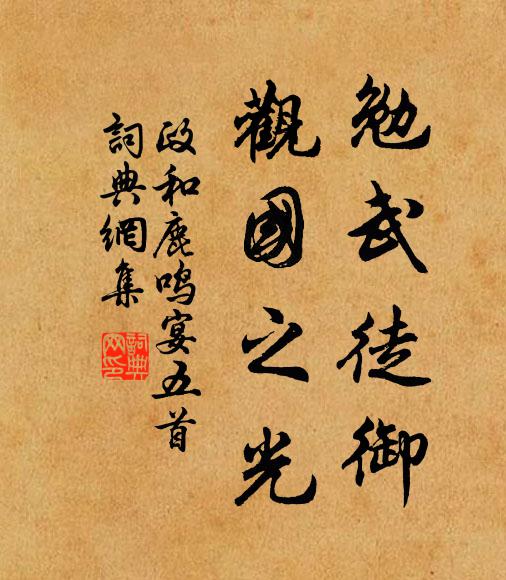 勉哉徒御
觀國之光
政和鹿鳴宴五首
詞典網集
詞典網印